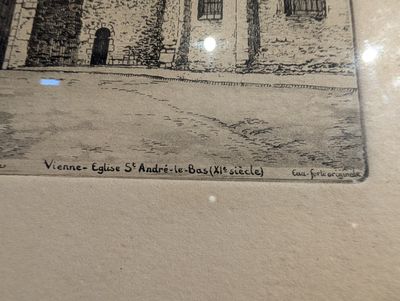 Vienne - Eglise St André-le-Bas (XIe siècle)
Eau-forte originale